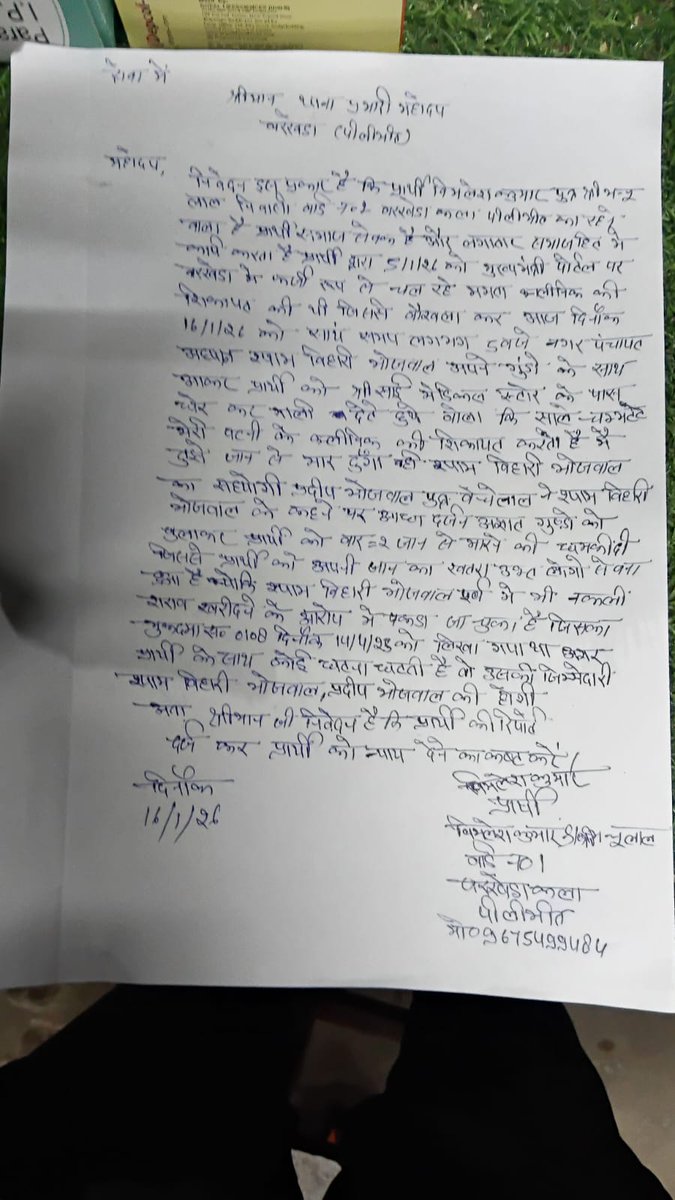 सेवा में
श्रीमान थाना प्रभारी महोदय
बरखेडा (पीलीभीत)
महोदय,
निवेदन इस प्रकार है कि प्रार्थी विमलेश कुमार पुत्र श्री
लाल निवासी वार्ड बरखेडा कला पीलीभीत का रहने
वाला है प्रार्थी समाज सेवक है और लगातार समाज हित मे
कार्य करता है प्रार्थी द्वारा 5/1/26 को मुख्यमंत्री पोर्टल पर
बरखेडा मे फर्जी रूप से चल रहे ममता क्लीनिक की
शिकायत की थी जिससे बौखला कर आज दिनाँक
16/1/26 को सायं समय लगभग 5 बजे नगर पंचायत
अध्यक्ष श्याम बिहारी भोजवाल अपने गुंडो के साथ
आकर प्रार्थी को श्री साई मेडिकल स्टोर के पास
घेर कर गाली देते हुये बोला कि साले
मेरी पत्नी के क्लीनिक की शिकायत करता है मै
तुझे जान से मार दुँगा श्याम बिहारी भोजवाल
का सहयोगी प्रदीप भोजवाल पुत्र वेचेलाल ने श्याम बिहारी
भोजवाल के कहने पर आधा दर्जन अज्ञात गुण्डो को
बुलाकर प्रार्थी को बार=2 जान से मारने की धमकी दी
जिससे प्रार्थी को अपनी जान का खतरा उक्त लोगो से बना
हुआ है क्योकि श्याम बिहारी भोजवाल पूर्व मे भी नकली
शराब खरीदने के आरोप मे पकडा जा चुका है जिसका
मुकदमा सं० 0108 दिनाँक को लिखा गया था अगर
प्रार्थी के साथ कोई घटना घटती है तो उसकी जिम्मेदारी
श्याम बिहारी भोजवाल, प्रदीप भोजवाल की होगी
अतः श्रीमान जी निवेदन है कि प्रार्थी की रिपोर्ट
दर्ज कर प्रार्थी को न्याय देने का कष्ट करें।
दिनाँक
16/1/26
विमलेश कुमार
प्रार्थी
विमलेश कुमार
वार्ड न० 1
बरखेडा कला
पीलीभीत
मो० 9675499484